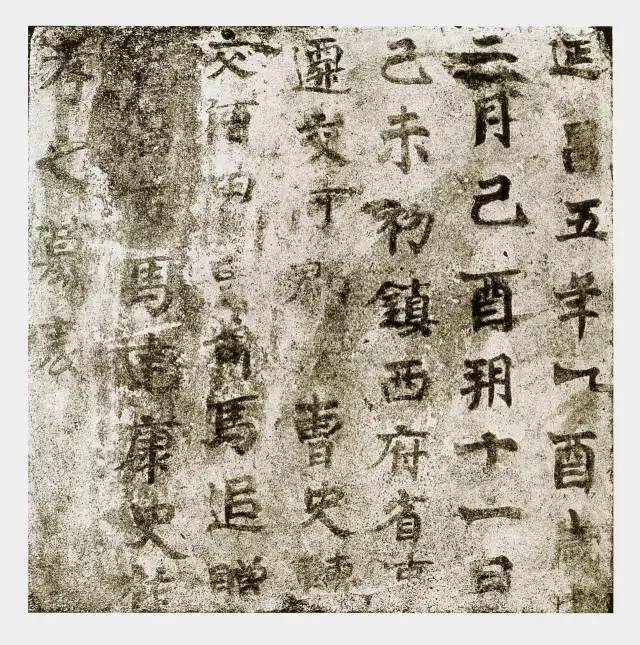 延昌五年乙酉歲
二月己酉朔十一日
己未初鎮西府省事
遷交河郡 曹史轉
交河田曹司馬追贈
昌司馬建康史
孝之墓表